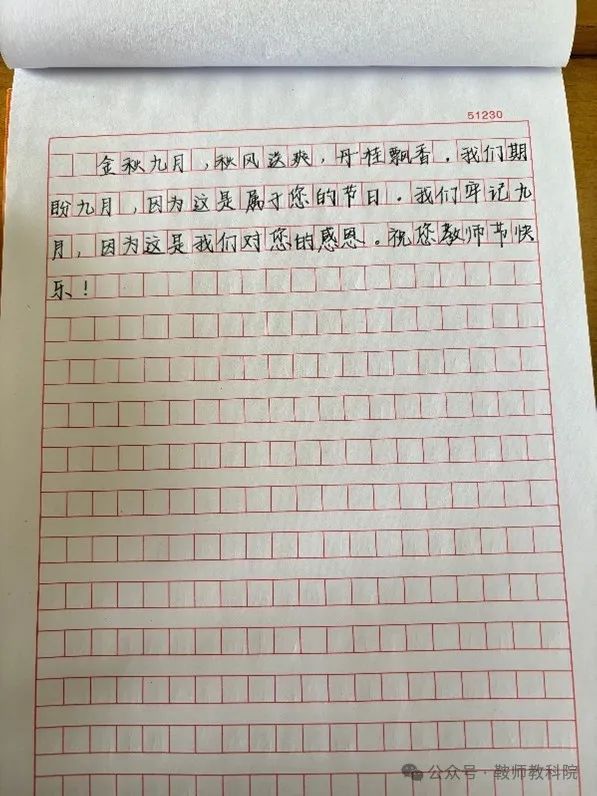 51230
金秋九月，秋风送爽，丹桂飘香．我们期
盼九月，因为这是属于您的节日．我们牢记九
月，因为这是我们对您的感恩．祝您教师节快
乐！
公众号·鞍师教科院